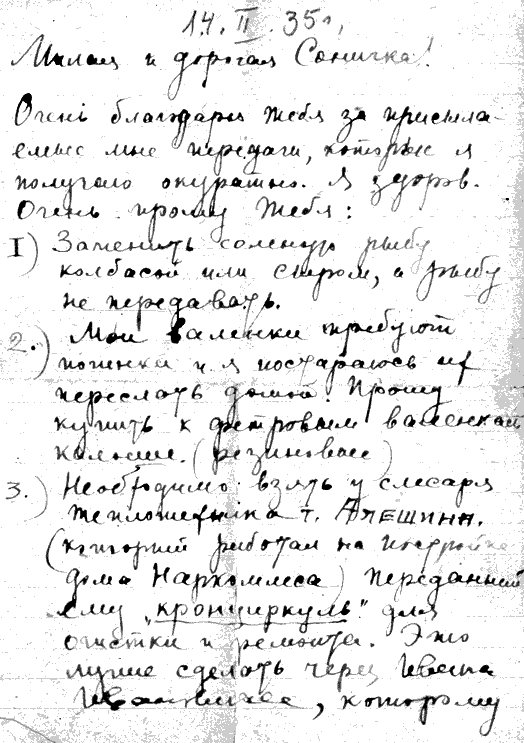 14.II.35г.
Милая и дорогая Соничка!
Очень благодарю тебя за присыла-
емые мне передачи, которые я
получаю окуратно. Я здоров.
Очень прошу тебя:
I) Заменить соленую рыбу
колбасой или сыром, а рыбу
не передавать.
2.) Мои валенки требуют
починки и я постараюсь их
переслать домой. Прошу
купить к фетровым валенкам
калоши. (резиновые)
3.) Необходимо взять у слесаря
теплотехника т. Алешина.
(который работал на постройке
дома Наркомлеса) переданный
ему "кронциркуль" для
очистки и ремонта. Это
лучше сделать через Ивана
Иваныча, которому